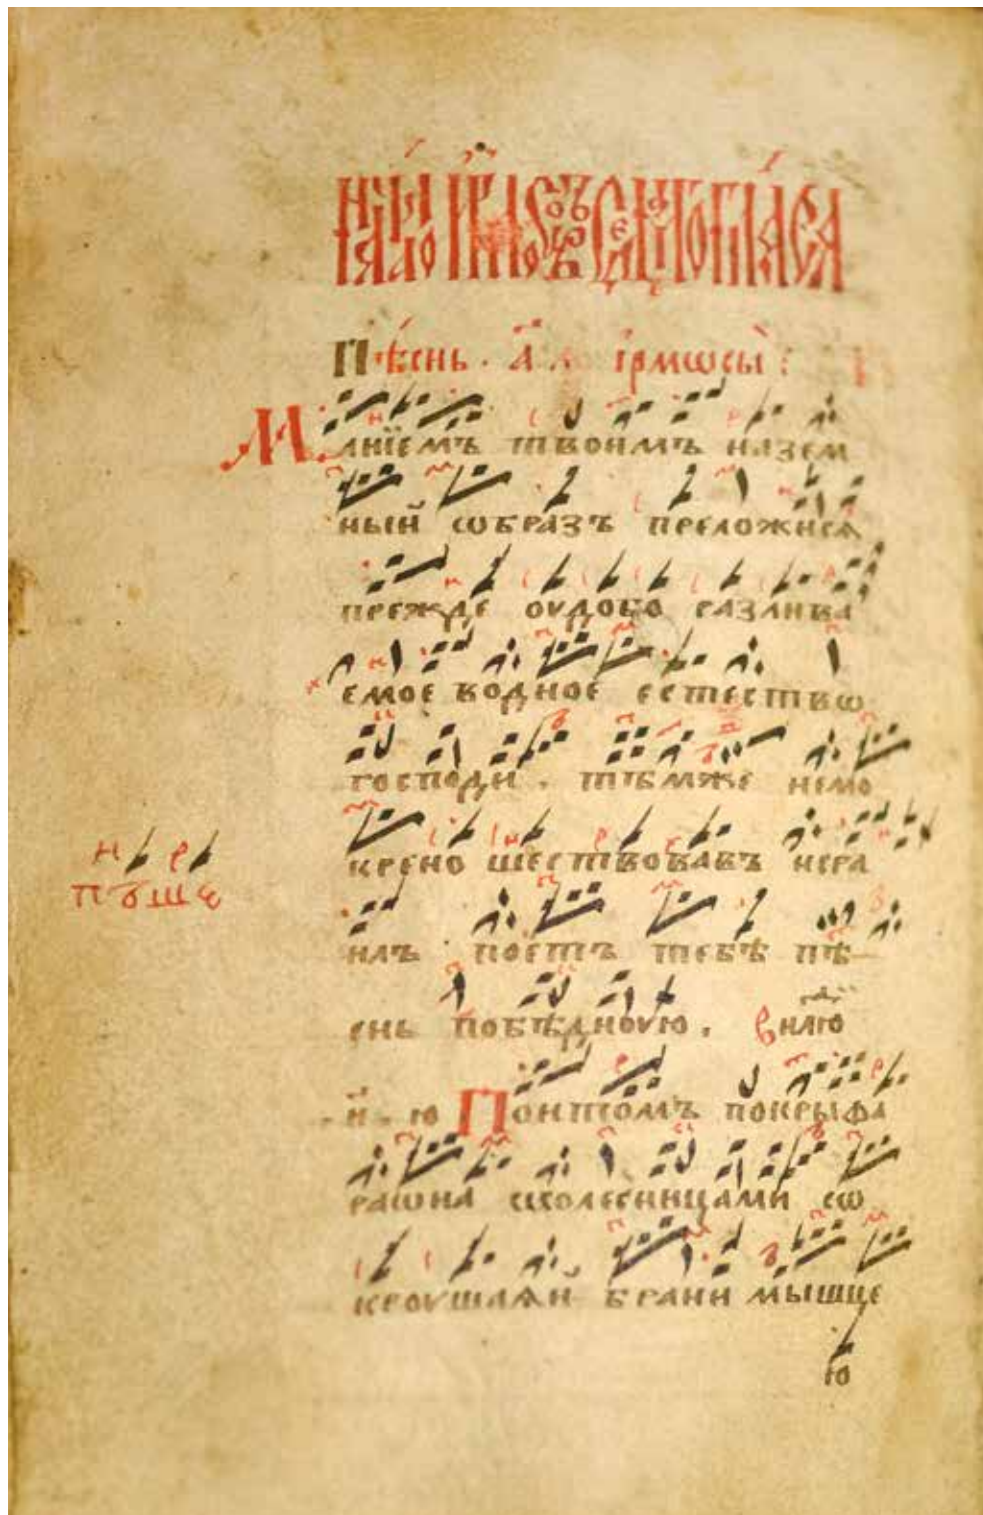 Начало ірмосовъ седмаго гласа
Пѣснь . а҃ ірмѡсы :
Манїемъ твоимъ назем
ный ѡбразъ преложисѧ
прежде оудобо разлива
емое водное естествѡ
господи . тѣмже немо
крено шествовавъ изра
иль поетъ тебѣ пѣ
снь побѣдноую .
Понтомъ покры фа
раѡна сколесницами со
кроушаѧй брани мышце
ю